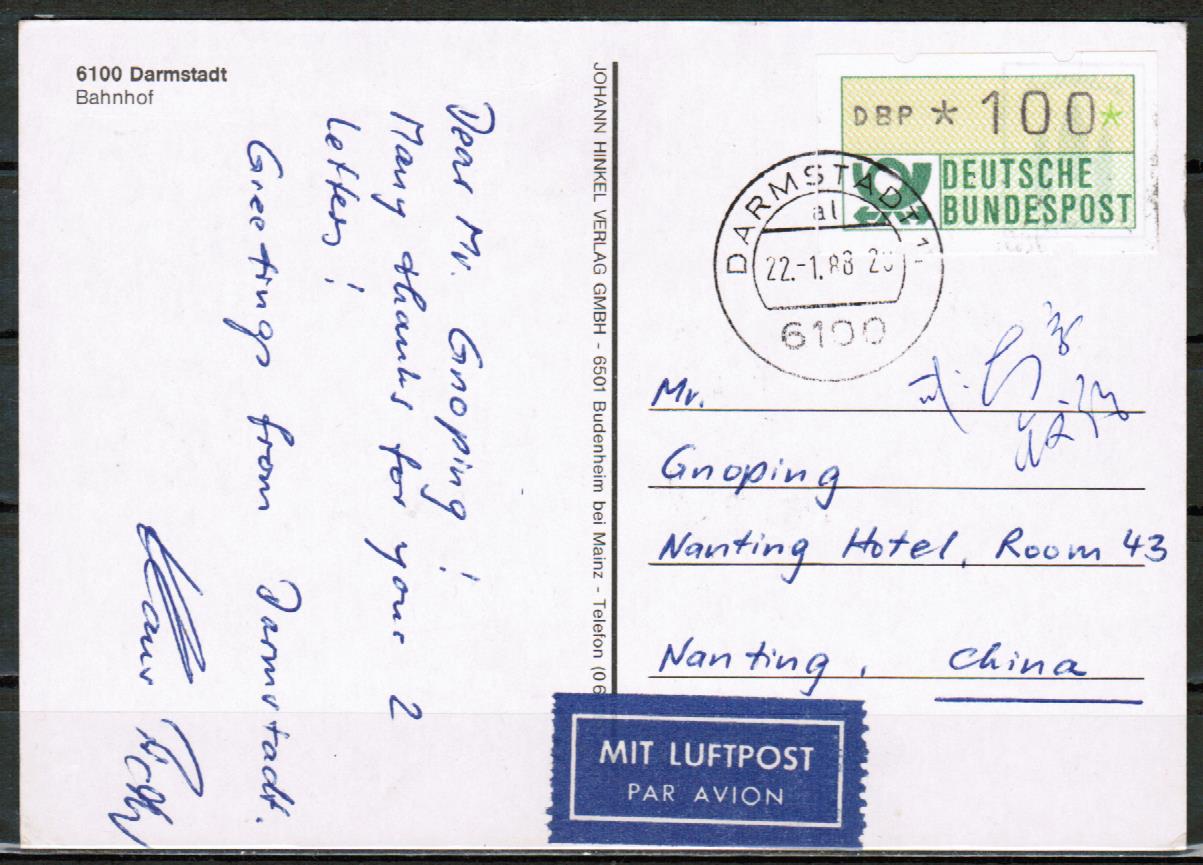 6100 Darmstadt
Bahnhof
Dear Mr. Gnoping!
Many thanks for your 2
letters!
Greetings from Darmstadt.
JOHANN HINKEL VERLAG GMBH - 6501 Budenheim bei Mainz - Telefon (0 6
DBP * 100*
DEUTSCHE
BUNDESPOST
DARMSTADT 1
al
22.-1.88
6100
Mr.
Gnoping
Nanting Hotel, Room 43
Nanting, China
MIT LUFTPOST
PAR AVION